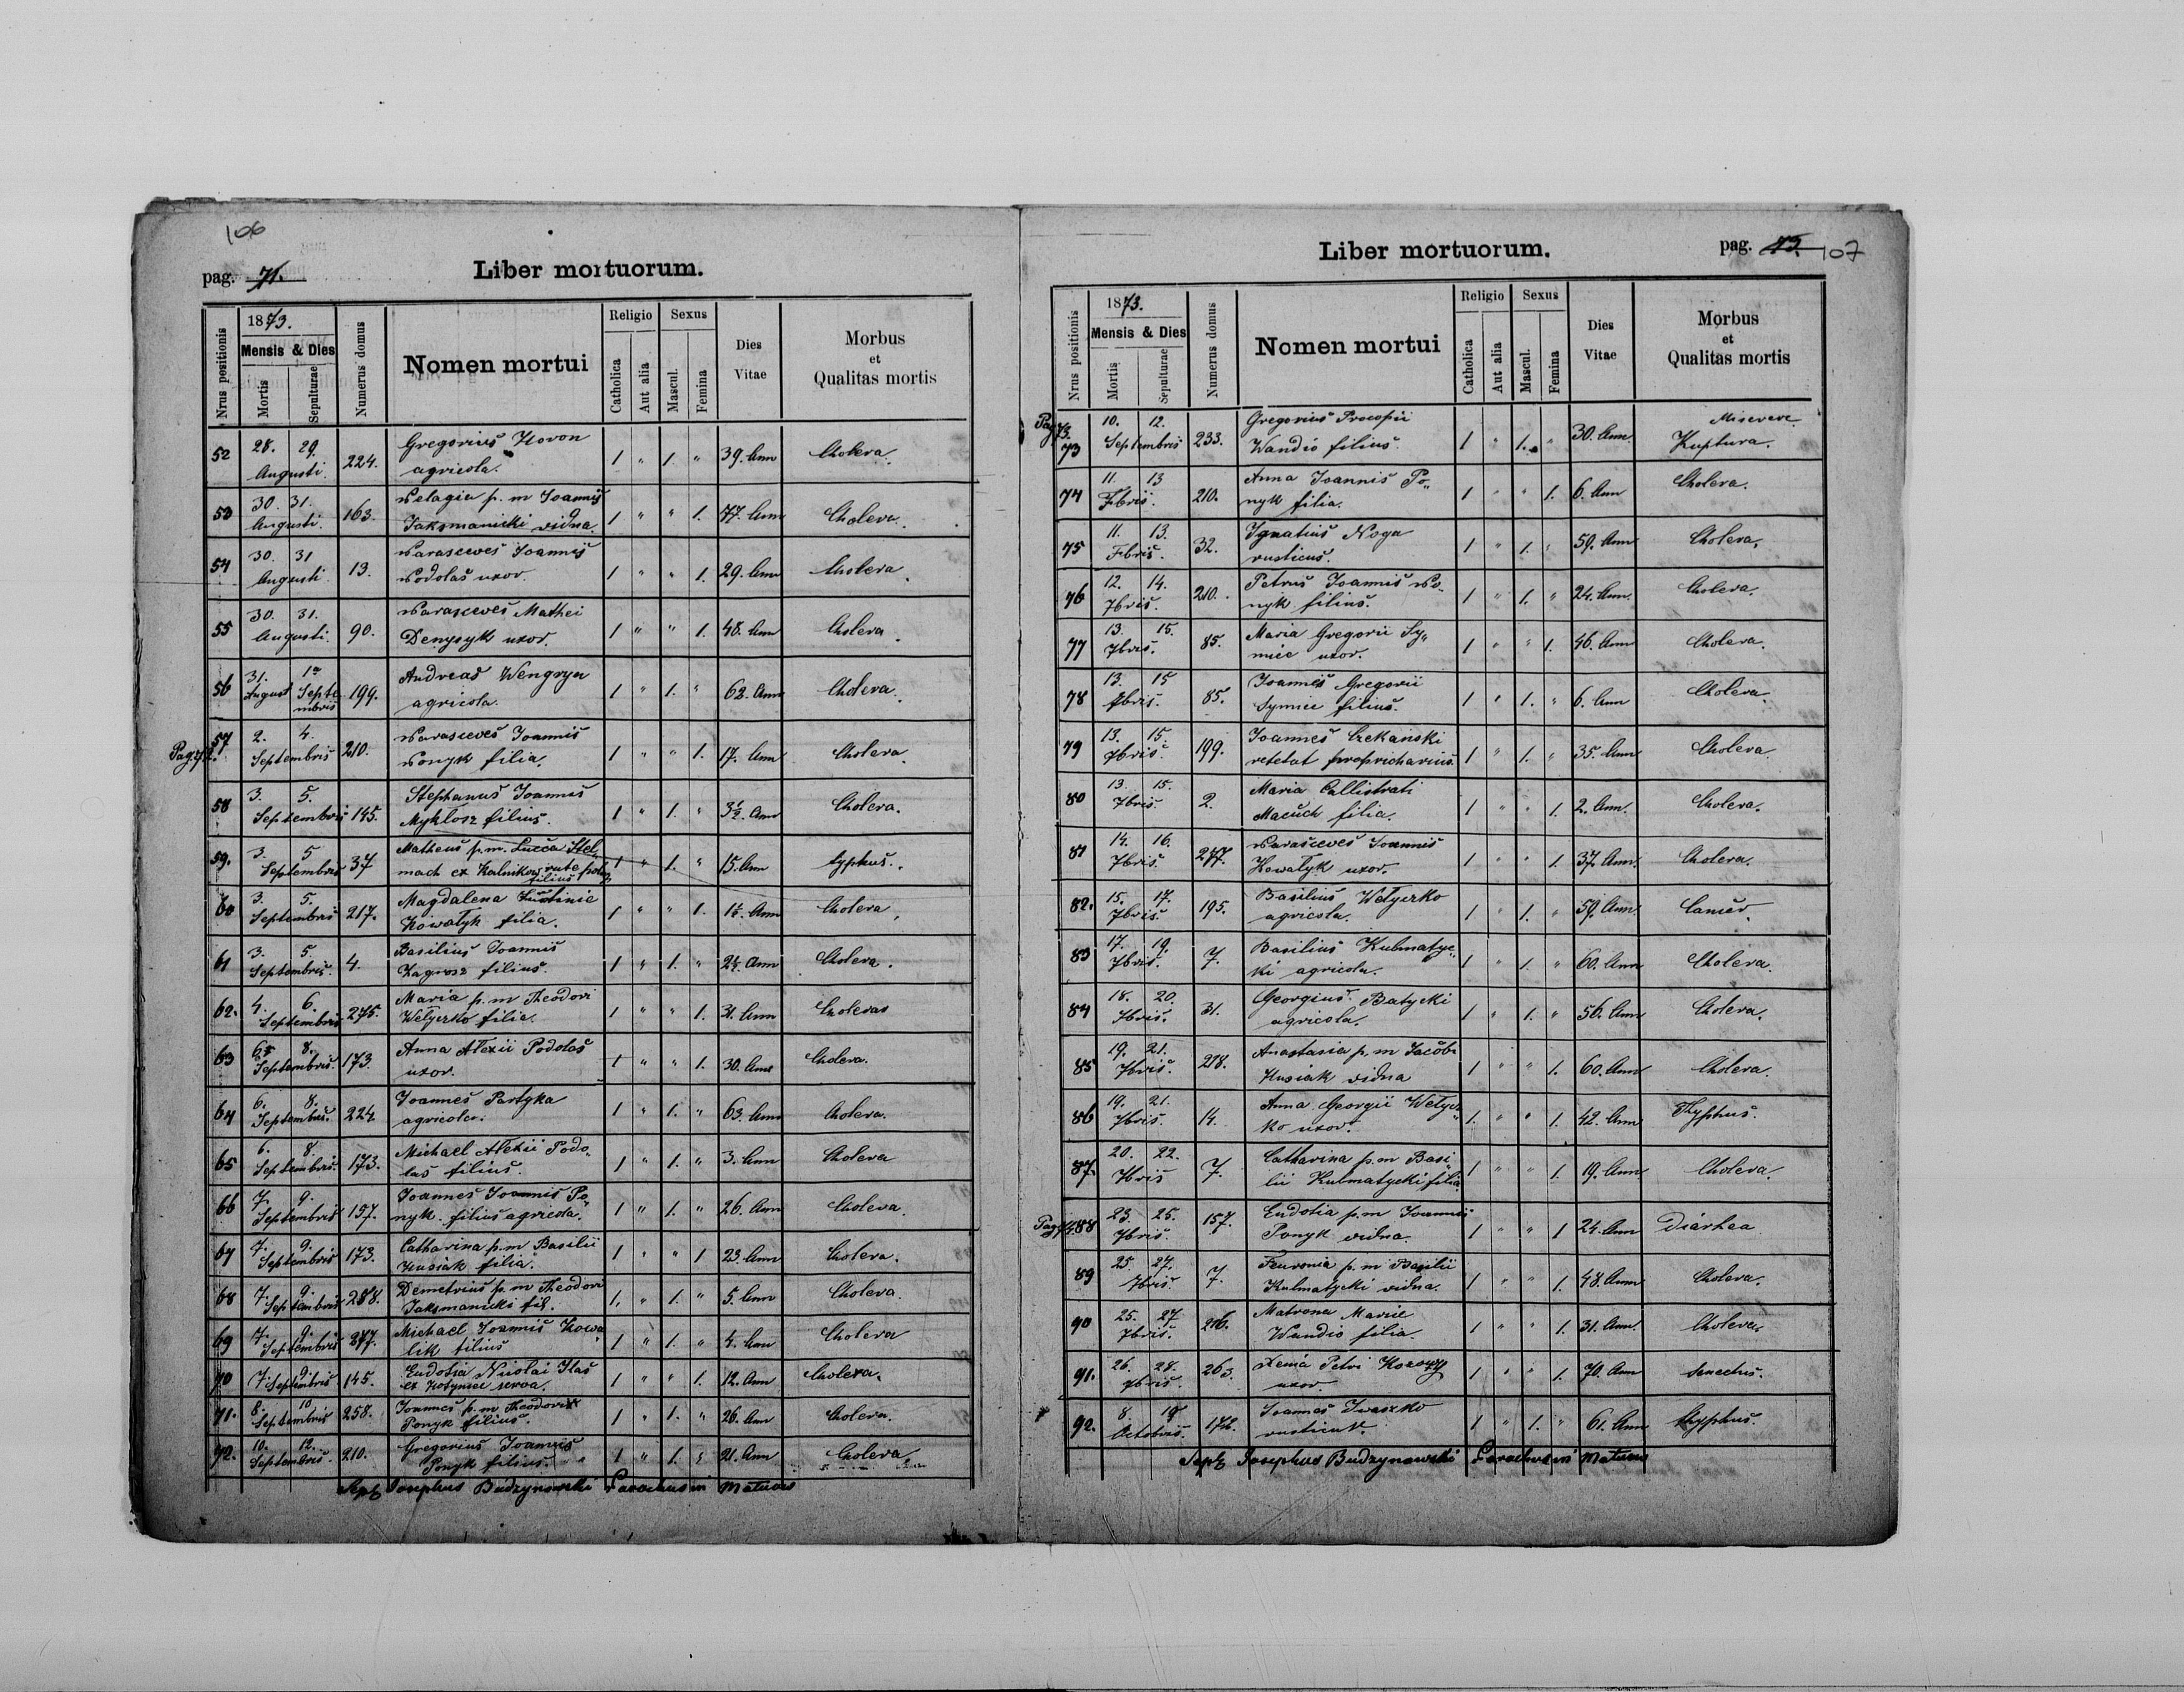 106
pag. 71.
Liber mortuorum.
Nrus positionis
1873.
Mensis & Dies
Mortis
Sepulturae
Numerus domus
Nomen mortui
Religio
Catholica
Aut alia
Sexus
Mascul.
Femina
Dies
Vitae
Morbus
et
Qualitas mortis
52 28. 29. Augusti 224. Gregorius Horon 1 " 1. " 39. Ann Cholera.
agricola.
53 30. 31. Augusti. 163. Pelagia p. m Joannis 1 " " 1. 77. Ann Cholera.
Jaksmanicki vidua.
54 30. 31 Augusti 13. Parasceves Joannis 1 " " 1. 29. Ann Cholera.
Podolas uxor.
55 30. 31. Augusti. 90. Parasceves Mathei 1 " " 1. 48. Ann Cholera.
Denysyk uxor.
56 31. August 1a Septembris 199. Andreas Wengryn 1 " 1. " 62. Ann Cholera.
agricola.
57 2. 4. Septembris 210. Parasceves Joannis 1 " " 1. 17. Ann Cholera.
Ponyk filia.
58 3. 5. Septembris 145. Stephanus Joannis 1 " 1. " 3½. Ann Cholera.
Myklosz filius.
59. 3. 5 Septembris 37 Matheus p. m. Lucca Stel 1 " 1. " 15. Ann typhus.
mach ex Kalnikow
filius
60 3. 5. Septembris 217. Magdalena Justinie 1 " " 1. 1½. Ann Cholera.
Kowalyk filia.
61 3. 5. Septembris. 4. Basilius Joannis 1 " 1. " 2½. Ann Cholera.
Zagrosz filius.
62. 4. 6. Septembris 275. Maria p. m Theodori 1 " " 1. 31. Ann Choleras
Welyczko filia.
63 6. 8. Septembris. 173. Anna Alexii Podolas 1 " " 1. 30. Ann Cholera.
uxor.
64 6. 8. Septembris. 224. Joannes Partyka 1 " 1. " 63. Ann Cholera.
agricola.
65 6. 8. Septembris. 173. Michael Alexii Podo 1 " 1. " 3. Ann Cholera
las filius.
66 7. 9. Septembris 157. Joannes Joannis Po 1 " 1. " 26. Ann Cholera.
nyk. filius agricola.
67 7. 9. Septembris 173. Catharina p. m Basilii 1 " " 1 23. Ann Cholera.
Kusiak filia.
68 7. 9. Septembris 288. Demetrius p. m Theodori 1. " 1. " 5. Ann Cholera.
Jaksmanicki fil.
69 7. 9. Septembris 277. Michael Joannis Kowa 1 " 1. " 4. Ann Cholera
lik filius
70 7. 9. Septembris 145. Eudotia Nicolai Ilas 1 " " 1. 12. Ann Cholera.
ex Hotyniec serva.
71. 8. 10 Septembris 258. Joannes p. m Theodori 1 " 1. " 26. Ann Cholera.
Ponyk filius.
92. 10. 12. Septembris. 210. Gregorius Joannis 1 " 1. " 21. Ann Cholera
Ponyk filius.
Josephus Budzynowski Parochus in
Liber mortuorum.
pag. 73. 107
Nrus positionis
1873.
Mensis & Dies
Mortis
Sepulturae
Numerus domus
Nomen mortui
Religio
Catholica
Aut alia
Sexus
Mascul.
Femina
Dies
Vitae
Morbus
et
Qualitas mortis
Pag 73.
73 10. 12. Septembris 233. Gregorius Procopii 1 " 1. " 30. Ann Miserere
Wandio filius. Ruptura.
74 11. 13 7bris. 210. Anna Joannis Po 1 " " 1. 6. Ann Cholera.
nyk filia.
75 11. 13. 7bris. 32. Ignatius Noga 1 " 1. " 59. Ann Cholera.
rusticus.
76 12. 14. 7bris. 210. Petrus Joannis Po 1 " 1. " 24. Ann. Cholera.
nyk filius.
77 13. 15. 7bris. 85. Maria Gregorii Sy 1 " " 1. 46. Ann Cholera.
mic uxor.
78 13. 15 7bris. 85. Joannes Gregorii 1 " 1. " 6. Ann Cholera.
filius.
79 13. 15. 7bris 199. Joannes Czekanski 1 " 1. " 35. Ann Cholera
80 13. 15. 7bris 2. Maria Callistrati 1 " " 1. 2. Ann. Cholera.
Macuch filia.
81 14. 16. 7bris. 277. Parasceves Joannis 1 " " 1. 37. Ann. Cholera.
Kowalyk uxor.
82. 15. 17. 7bris. 195. Basilius Welyczko 1 " 1. " 59. Ann. Cancer.
agricola.
83 17. 19. 7bris. 7. Basilius Kulmatyc 1 " 1. " 60. Ann Cholera.
ki agricola.
84 18. 20. 7bris. 31. Georgius Batycki 1 " 1. " 56. Ann Cholera.
agricola.
85 19. 21. 7bris. 218. Anastasia p. m Jacobi 1 " " 1. 60. Ann Cholera.
Kusiak vidua
86 19. 21. 7bris. 14. Anna Georgii Welycz 1. " " 1. 42. Ann Thyphus.
ko uxor.
87. 20. 22. 7bris 7. Catharina p. m Basi 1 " " 1. 19. Ann Cholera.
lii Kulmatycki filia.
88 23. 25. 7bris. 157. Eudotia p. m Joannis 1 " " 1 24. Ann Diárhea
Ponyk vidua.
89 25. 27. 7bris. 7. Feuronia p. m Basilii 1 " " 1. 48. Ann Cholera.
Kulmatycki vidua.
90 25. 27 7bris. 216. Matrona Marie 1 " " 1. 31. Ann. Cholera.
Wandio filia.
91. 26. 28. 7bris. 263. Xenia Petri 1 " " 1. 70. Ann Senectus.
uxor.
92. 8. Octobris. Joannes Iwaszko 1 " 1. " 61. Ann thyphus.
Josephus Budzynowski Parochus in